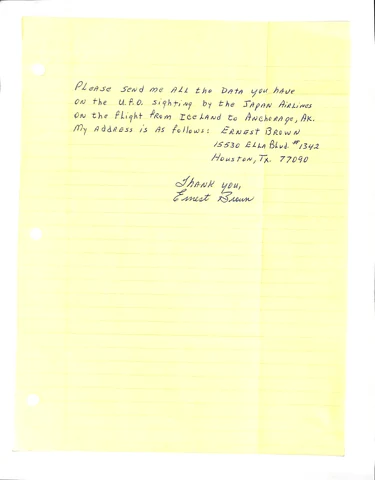 Please send me all the data you have
on the U.F.O. sighting by the Japan Airlines
on the flight from Iceland to Anchorage, Ak.
My address is as follows: Ernest Brown
15530 Ella Blvd. #1342
Houston, Tx 77090
Thank you,
Ernest Brown